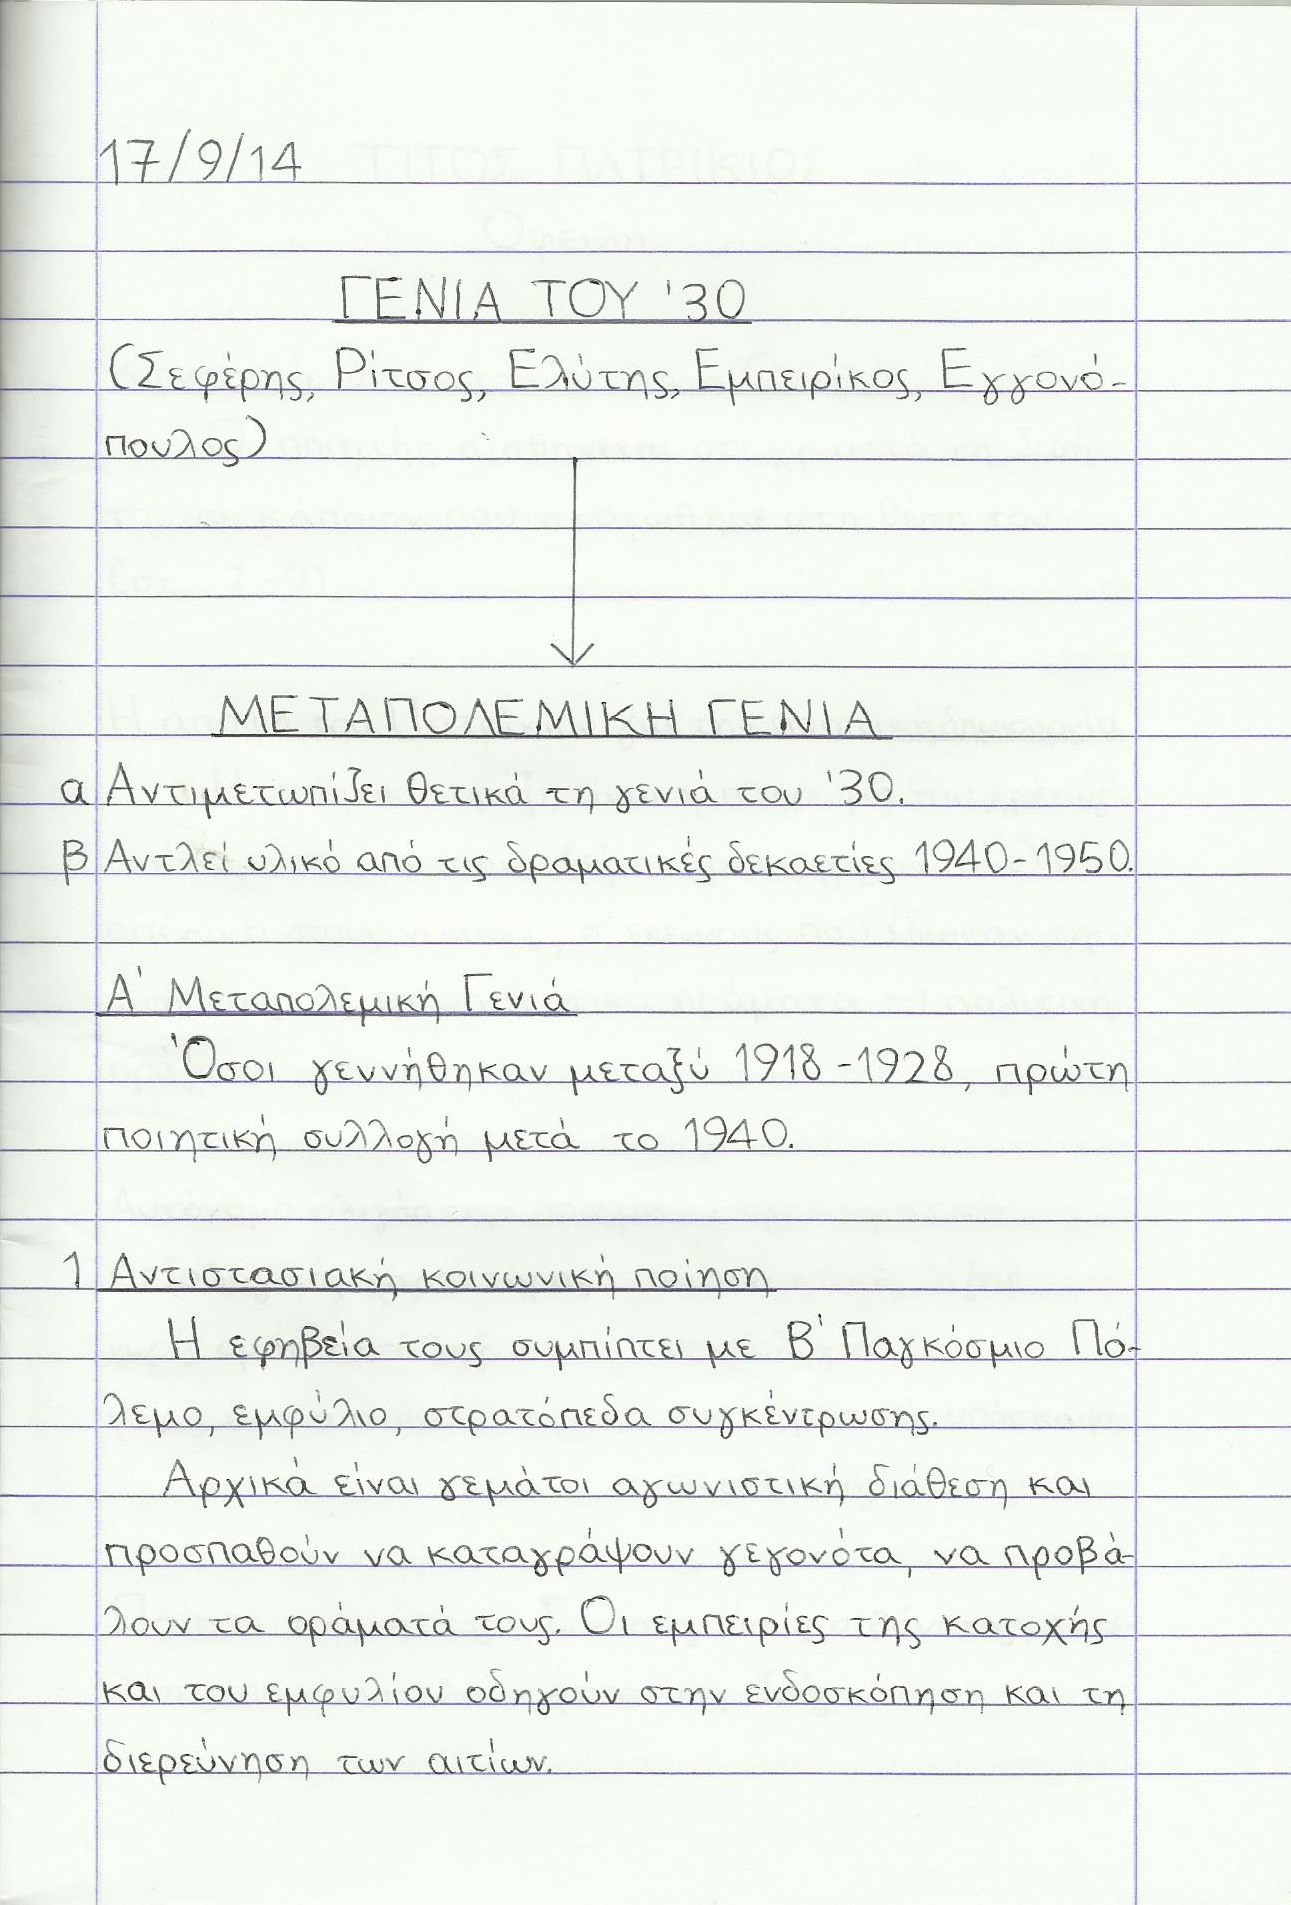 17/9/14
ΓΕΝΙΑ ΤΟΥ '30
(Σεφέρης, Ρίτσος, Ελύτης, Εμπειρίκος, Εγγονό-
πουλος)
ΜΕΤΑΠΟΛΕΜΙΚΗ ΓΕΝΙΑ
α Αντιμετωπίζει θετικά τη γενιά του '30.
β Αντλεί υλικό από τις δραματικές δεκαετίες 1940-1950.
Α' Μεταπολεμική Γενιά
Όσοι γεννήθηκαν μεταξύ 1918-1928, πρώτη
ποιητική συλλογή μετά το 1940.
1 Αντιστασιακή κοινωνική ποίηση
Η εφηβεία τους συμπίπτει με Β' Παγκόσμιο Πό-
λεμο, εμφύλιο, στρατόπεδα συγκέντρωσης.
Αρχικά είναι γεμάτοι αγωνιστική διάθεση και
προσπαθούν να καταγράψουν γεγονότα, να προβά-
λουν τα οράματά τους. Οι εμπειρίες της κατοχής
και του εμφυλίου οδηγούν στην ενδοσκόπηση και τη
διερεύνηση των αιτίων.